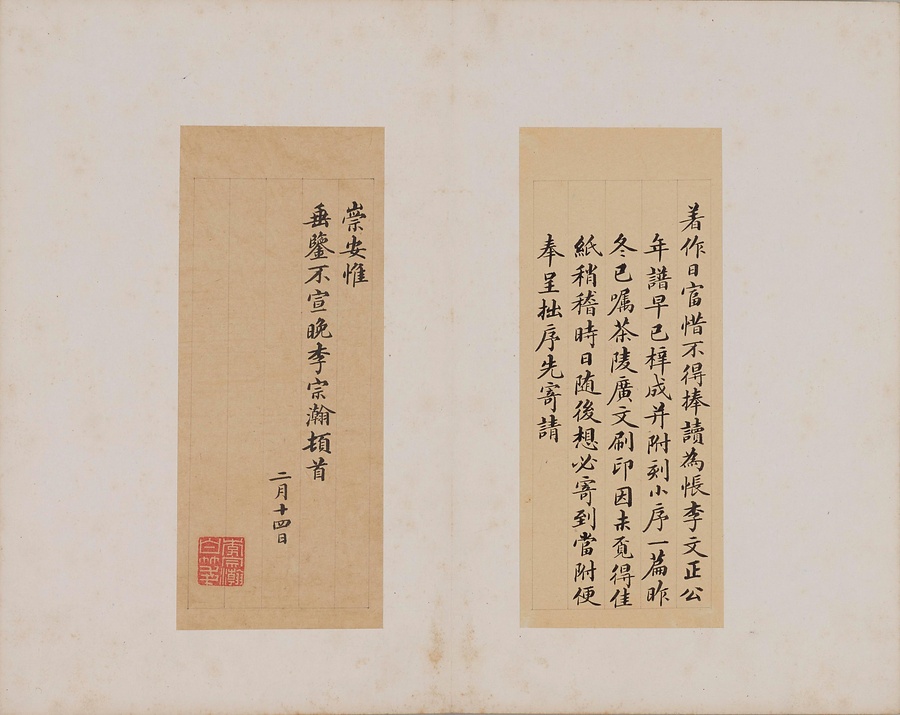 著作日富惜不得捧讀為悵李文正公
年譜早已梓成并附刻小序一篇昨
冬已囑茶陵廣文刷印因未覓得佳
紙稍稽時日随後想必寄到當附便
奉呈拙序先寄請
崇安惟
垂鑒不宣晚李宗瀚頓首
二月十四日
李宗瀚
白箋